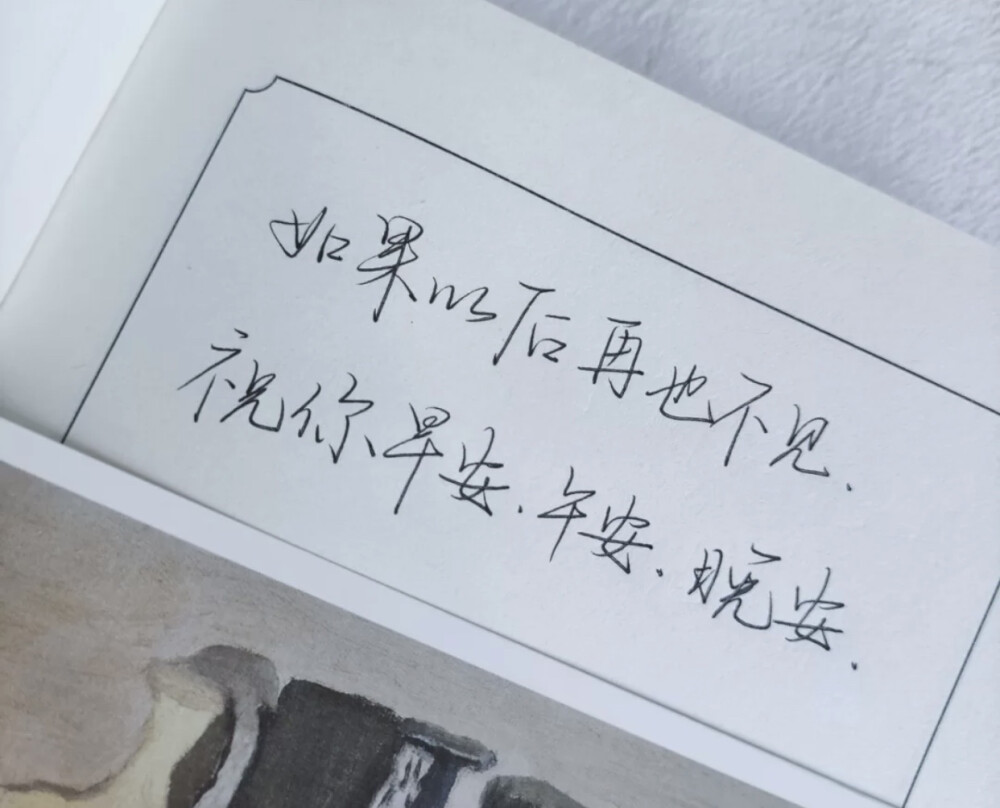 如果以后再也不见.
祝你早安.午安.晚安.